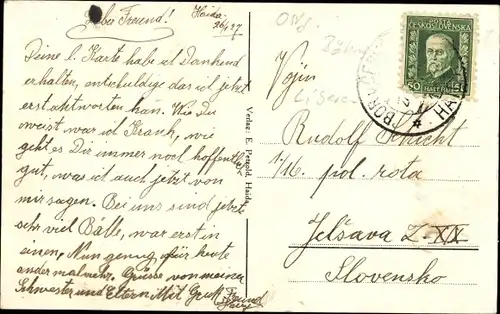 Lieber Freund!
Haida
26/4 27
Deine l. Karte habe ich Dankend
erhalten, entschuldige das ich jetzt
erst antworten kan. Wie Du
weist war ich Krank, wie
geht es Dir immer noch hoffentlich
gut, was ich auch jetzt von
mir sagen. Bei uns sind jetzt
sehr viel Bälle, war erst in
einen, Nun genug für heute
ander mal mehr. Grüsse von meiner
Schwester und Eltern. Mit Gruß Freund
Verlag: E. Petzold, Haida.
POŠTA
ČESKOSLOVENSKÁ
50 50
HALÉŘŮ
BOR U Č
HAI
Vojín
Rudolf Schicht
1/16. pol. rota
Jelšava Z-XIX
Slovensko